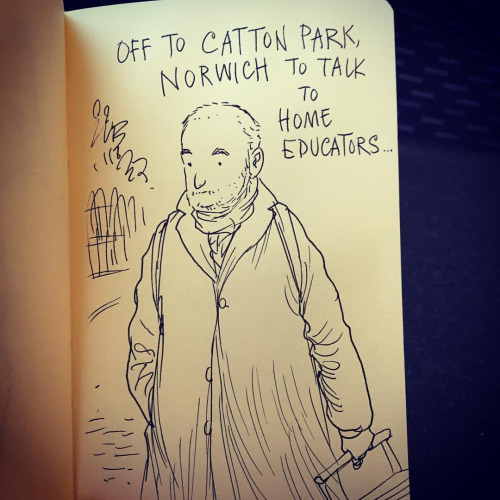 OFF TO CATTON PARK,
NORWICH TO TALK
TO
HOME
EDUCATORS...